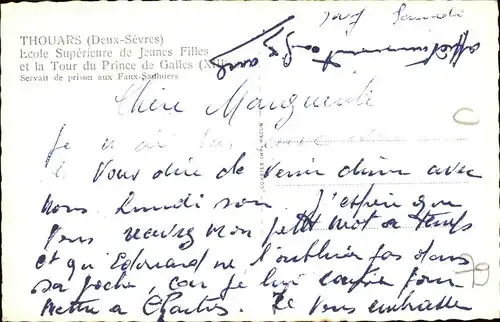 THOUARS (Deux-Sèvres)
Ecole Supérieure de Jeunes Filles
et la Tour du Prince de Galles (XII
Servait de prison aux Faux-Sauniers
Samedi
Chère Marguerite
Je
Vous dire de venir diner avec
nous Lundi soir. J'espère que
Vous recevrez mon petit mot a temps
et qu'Edouard ne l'oubliera pas dans
sa poche, car je lui confie pour
mettre a Chartres. Je Vous embrasse
79